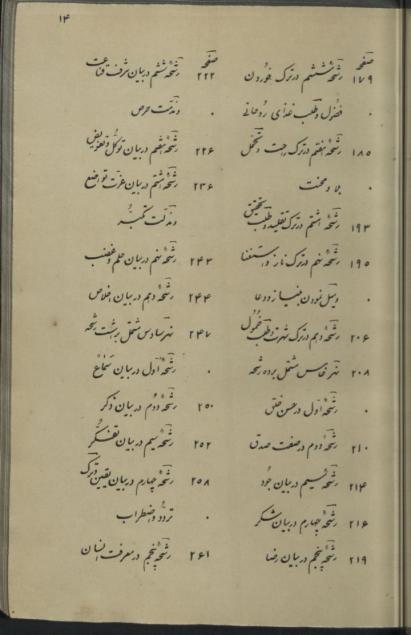 ۱۴
صفحه
۱۷۹ رشحهٔ ششم در ترک خوردن
۰ فضول و طلب غذای روحانی
۱۸۵ رشحهٔ هفتم در ترک راحت و تحمل
۰ بلا و محنت
۱۹۳ رشحهٔ هشتم در ترک تقلید و طلب تحقیق
۱۹۵ رشحهٔ نهم در ترک ناز و استغنا
۰ وسیل نمودن بنیاز و دعا
۲۰۶ رشحهٔ دهم در ترک شهرت و طلب خمول
۲۰۸ نهر خامس مشتمل بر ده رشحه
۰ رشحهٔ اول در حسن خلق
۲۱۰ رشحهٔ دوم در صفت صدق
۲۱۴ رشحهٔ سیم در بیان جود
۲۱۶ رشحهٔ چهارم در بیان شکر
۲۱۹ رشحهٔ پنجم در بیان رضا
صفحه
۲۲۲ رشحهٔ ششم در بیان شرف قناعت
۰ و مذمت حرص
۲۲۶ رشحهٔ هفتم در بیان توکل و تفویض
۲۳۶ رشحهٔ هشتم در بیان عزت تواضع
و مذلت تکبر
۲۴۳ رشحهٔ نهم در بیان حلم و غضب
۲۴۴ رشحهٔ دهم در بیان اخلاص
۲۴۷ نهر سادس مشتمل بر هشت رشحه
۰ رشحهٔ اول در بیان سماع
۲۵۰ رشحهٔ دوم در بیان ذکر
۲۵۲ رشحهٔ سیم در بیان تفکر
۲۵۸ رشحهٔ چهارم در بیان یقین و ترک
۰ تردد و اضطراب
۲۶۱ رشحهٔ پنجم در معرفت انسان